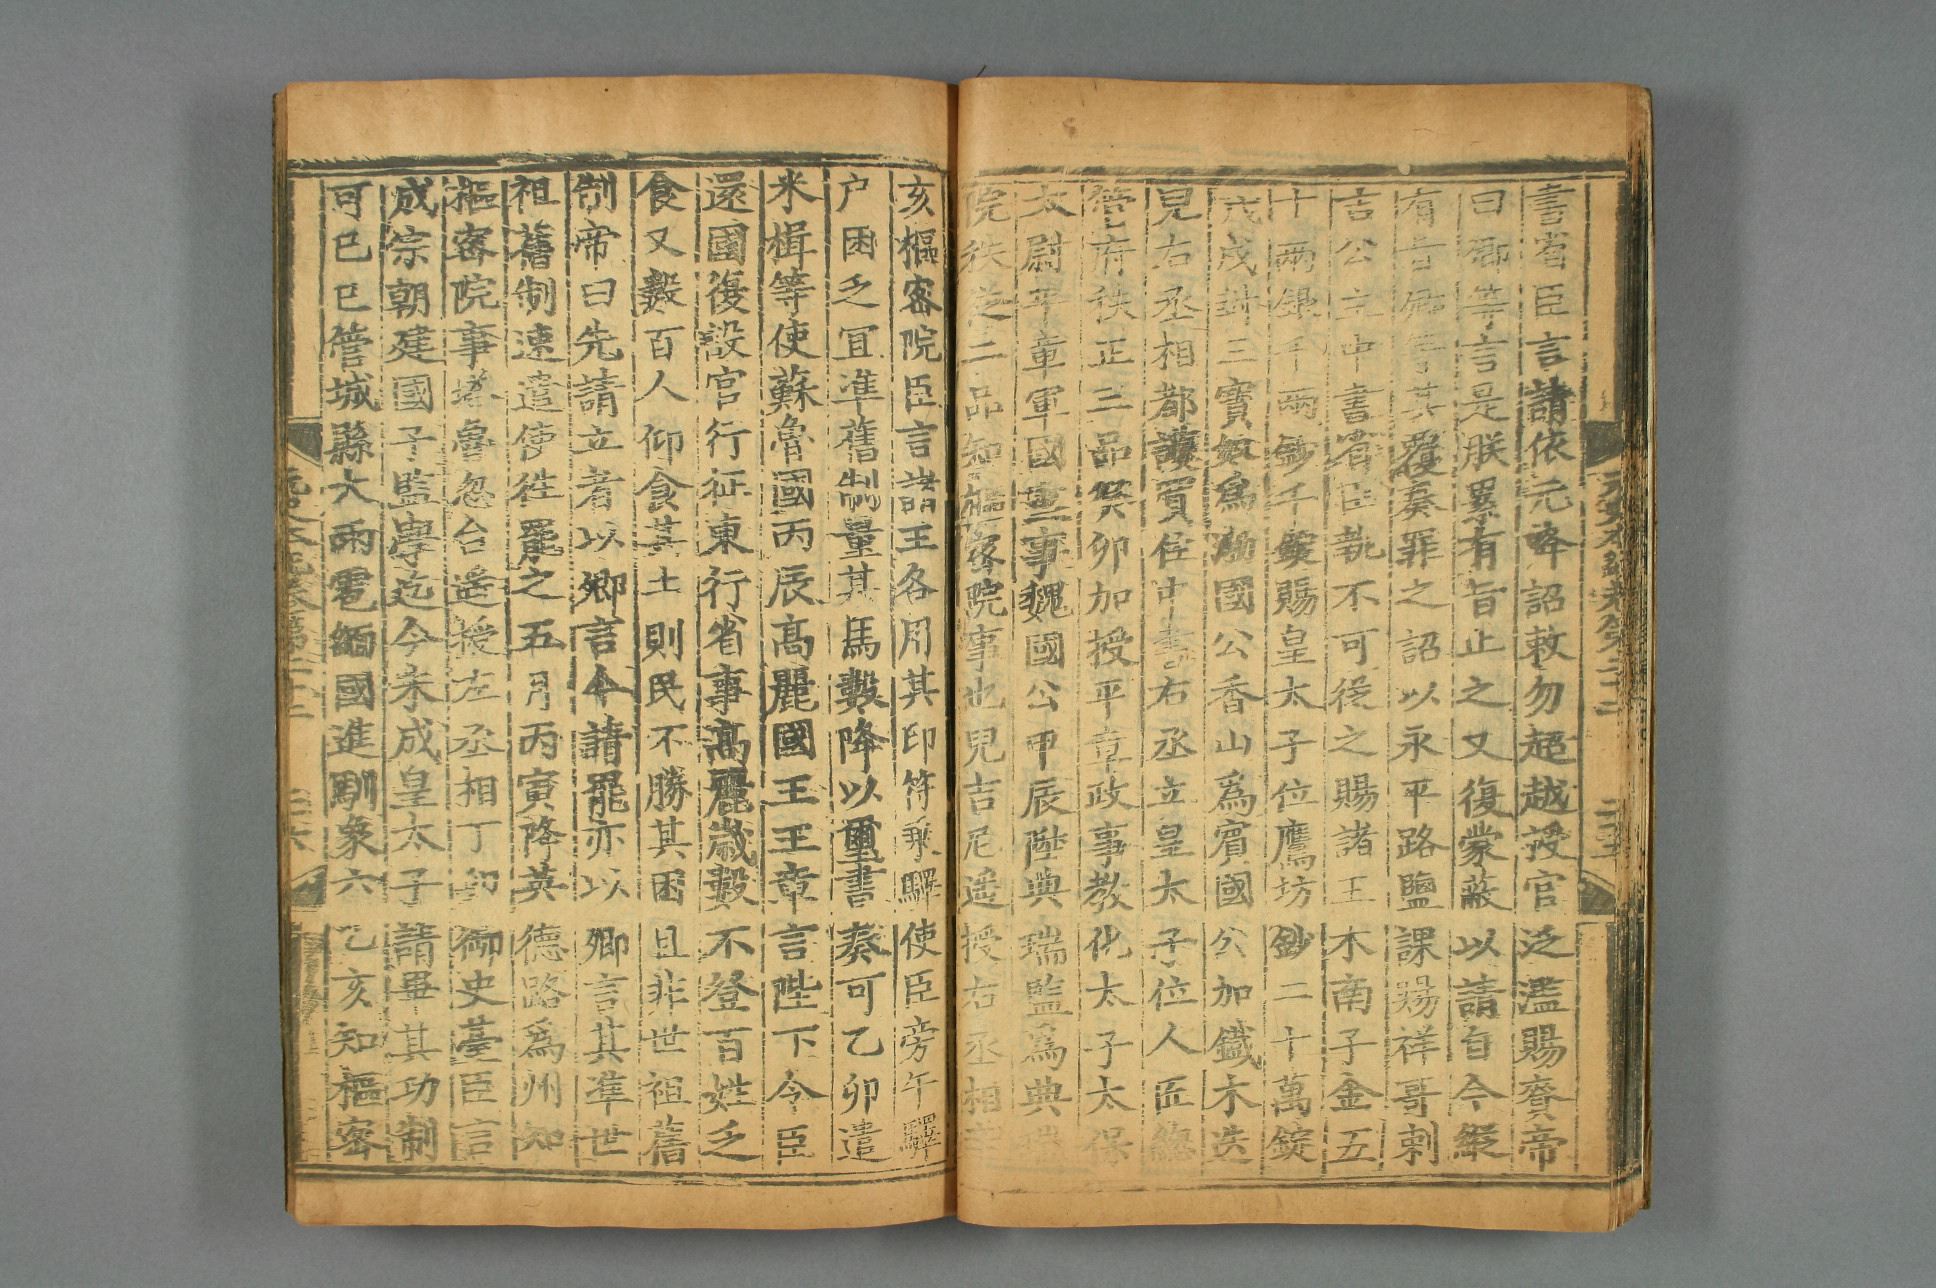 書省臣言請依元降詔敕勿超越授官泛濫賜賚帝
曰卿等言是朕累有旨止之又復蒙蔽以請自今縱
有旨卿等其覆奏罪之詔以永平路鹽課賜祥哥剌
吉公主中書省臣執不可從之賜諸王木南子金五
十兩銀千兩鈔千錠賜皇太子位鷹坊鈔二十萬錠
戊戌封三寶奴爲渤國公香山爲賓國公加鐵木迭
兒右丞相都護買住中書右丞立皇太子位人匠總
管府秩正三品癸卯加授平章政事教化太子太保
太尉平章軍國重事魏國公甲辰陞典瑞監爲典瑞
院秩從二品知樞密院事也兒吉尼遥授右丞相辛
亥樞密院臣言諸王各用其印符乘驛使臣旁午驛
户困乏宜準舊制量其馬數降以璽書奏可乙卯遣
米楫等使蘇魯國丙辰高麗國王王章言陛下令臣
還國復設官行征東行省事高麗歲數不登百姓乏
食又數百人仰食其土則民不勝其困且非世祖舊
制帝曰先請立者以卿言今請罷亦以卿言其準世
祖舊制速遣使徃罷之五月丙寅降英德路爲州知
樞密院事塔魯忽台遥授左丞相丁卯御史臺臣言
成宗朝建國子監學迄今未成皇太子請畢其功制
可己巳管城縣大雨雹緬國進馴象六乙亥知樞密